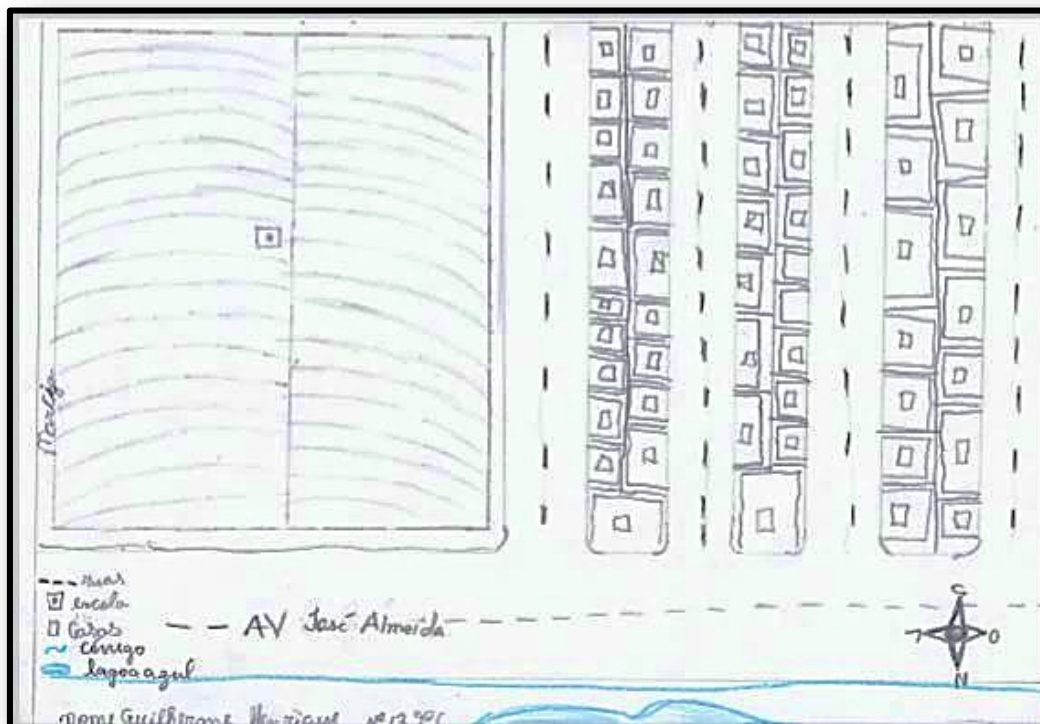 ruas
escola
Casas
córrego
lagoa azul
AV José Almeida
S
O
N
nome Guilherme Henrique nº 12